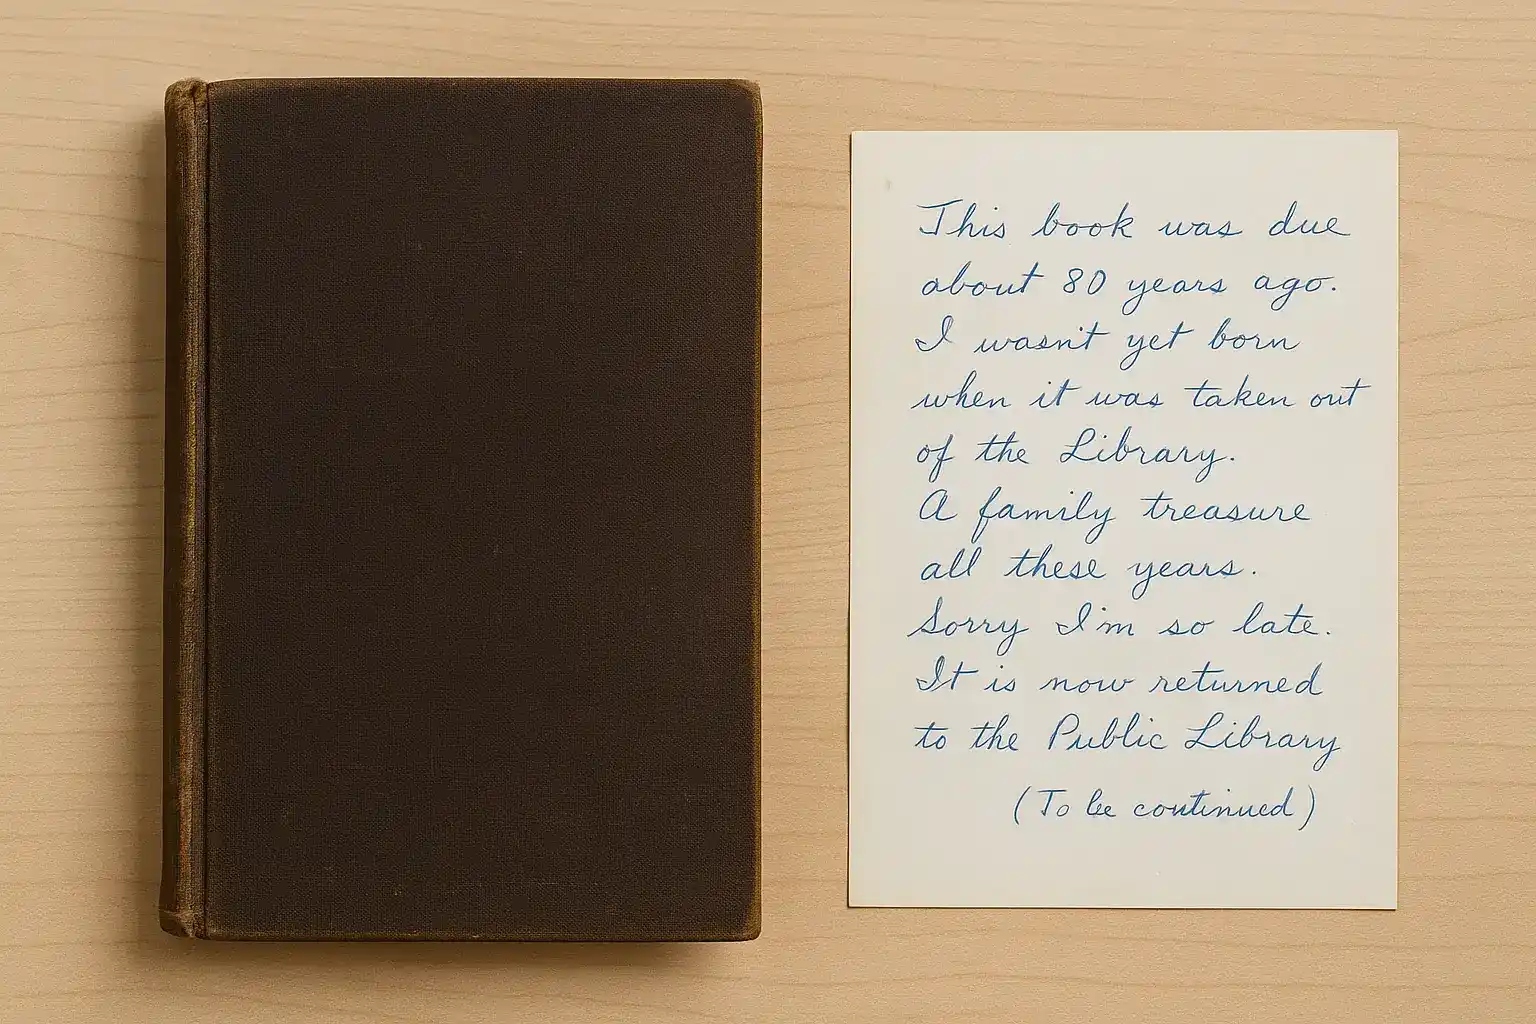 This book was due
about 80 years ago.
I wasn't yet born
when it was taken out
of the Library.
A family treasure
all these years.
Sorry I'm so late.
It is now returned
to the Public Library
(To be continued)